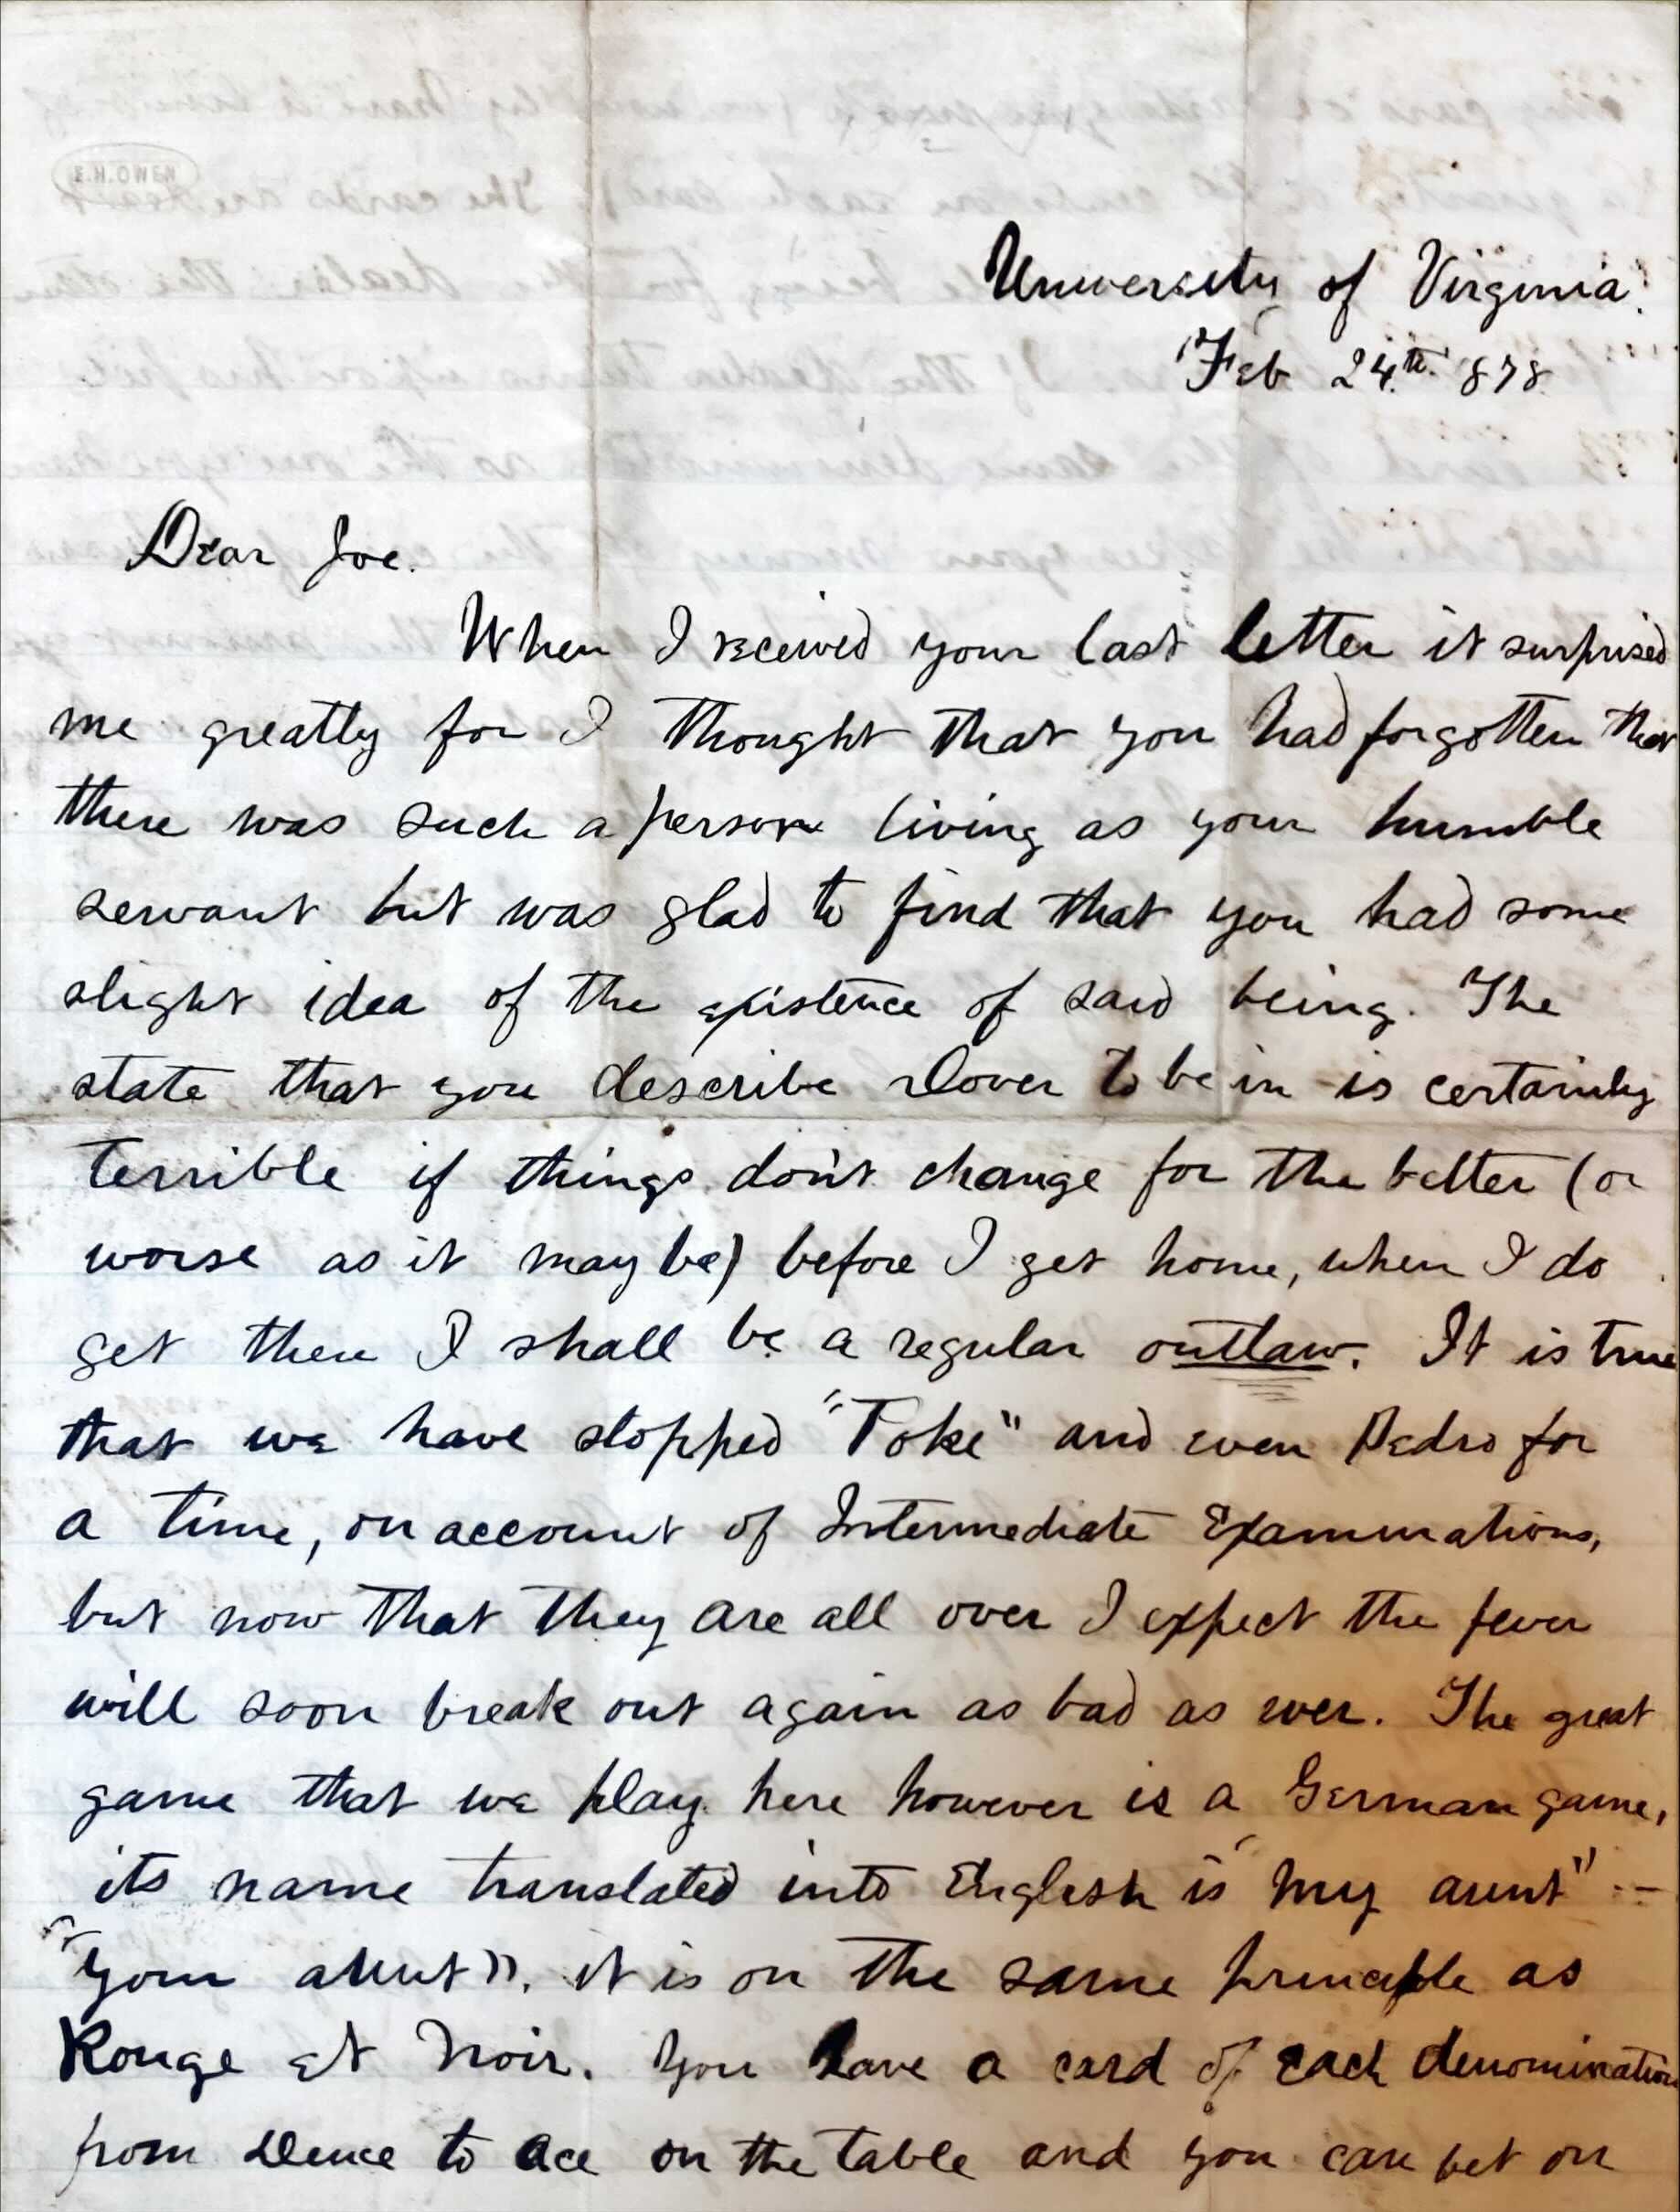 E.H.OWEN
University of Virginia.
Feb 24th 878.
Dear Joe.
When I received your last letter it surprised
me greatly for I thought that you had forgotten that
there was such a person living as your humble
servant but was glad to find that you had some
slight idea of the existence of said being. The
state that you describe Dover to be in is certainly
terrible if things don't change for the better (or
worse as it may be) before I get home, when I do
get there I shall be a regular outlaw. It is true
that we have stopped "Poke" and even Pedro for
a time, on account of Intermediate Examinations,
but now that they are all over I expect the fever
will soon break out again as bad as ever. The great
game that we play here however is a German game,
its name translated into English is "my aunt" --
"your aunt". it is on the same principle as
Rouge et Noir. You have a card of each denomination
from Deuce to Ace on the table and you can bet on